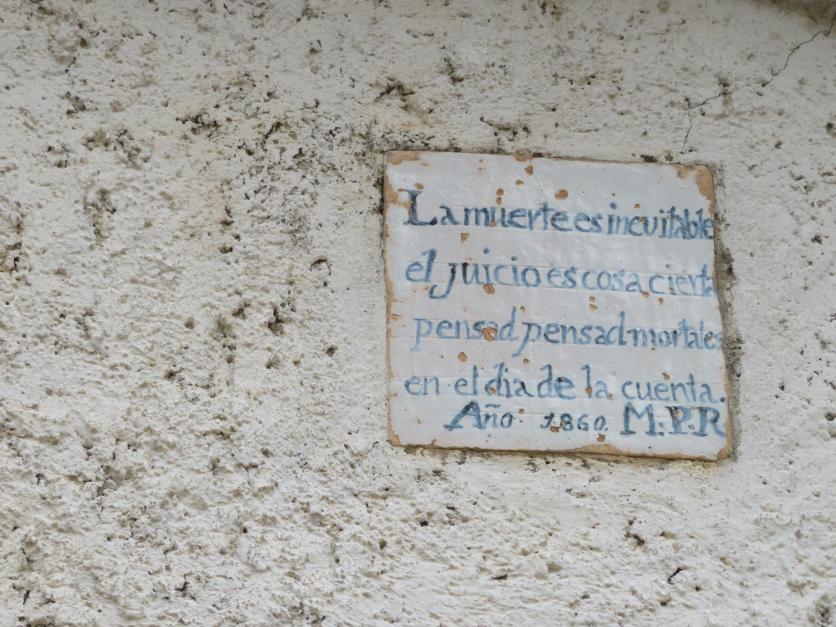 La muerte es inevitable
el juicio es cosa cierta
pensad pensad mortales
en el dia de la cuenta.
Año: 1860. M.P.R